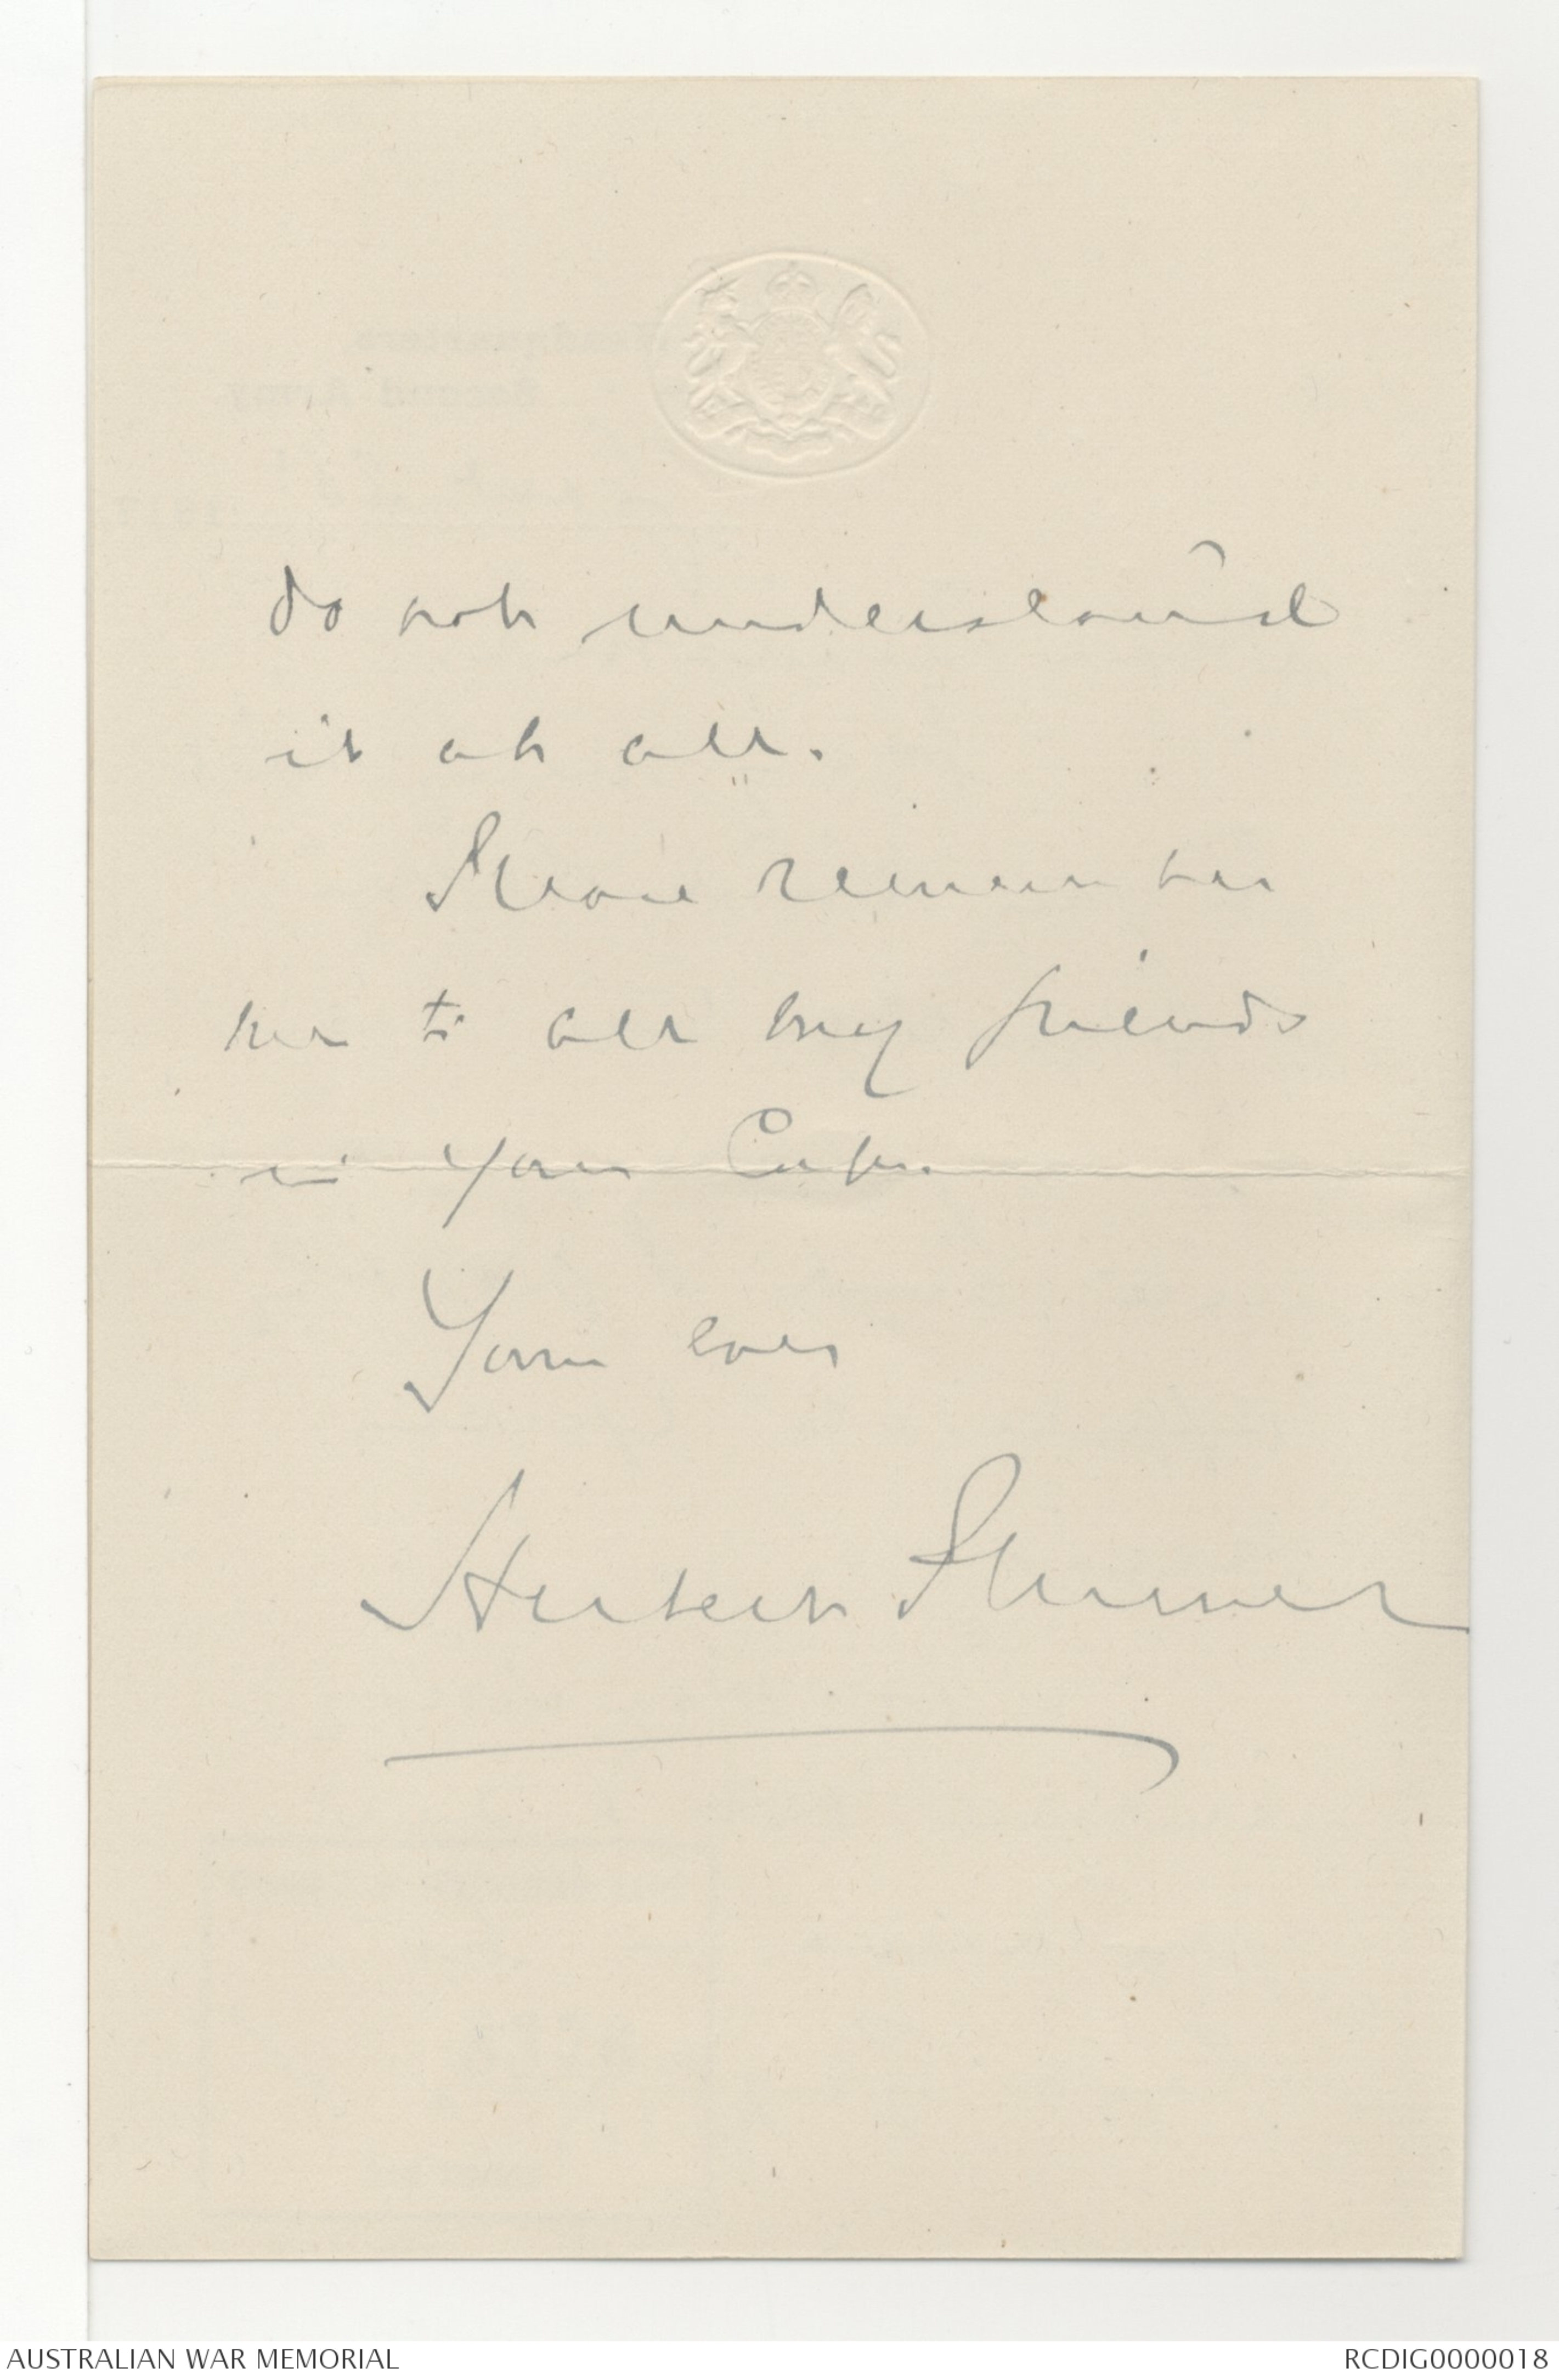 do not understand
it at all.
Please remember
me to all my friends
in your Corps.
Yours ever
Herbert Plumer
AUSTRALIAN WAR MEMORIAL
RCDIG0000018